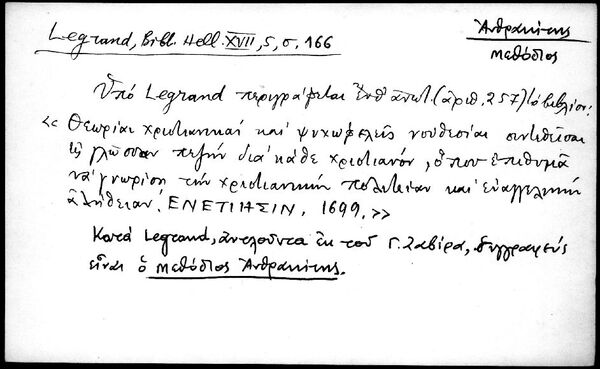 Legrand, Bibl. Hell. XVII, 5, σ. 166
Ἀνθρακίτης
Μεθόδιος
Ὑπό Legrand περιγράφεται ἐνθ' ἀνωτ. (ἀριθ. 257) τό βιβλίον:
<< Θεωρίαι χριστιανικαί καί ψυχωφελεῖς νουθεσίαι συντεθεῖσαι
εἰς γλῶσσαν πεζήν διά κάθε χριστιανόν, ὁπου ἐπιθυμᾶ
νά γνωρίσῃ τήν χριστιανικήν πολιτείαν καί εὐαγγελικήν
ἀλήθειαν. ΕΝΕΤΙΗΣΙΝ, 1699. >>
Κατά Legrand, ἀντλοῦντα ἐκ τοῦ Γ. Ζαβίρα, συγγραφεύς
εἶναι ὁ Μεθόδιος Ἀνθρακίτης.